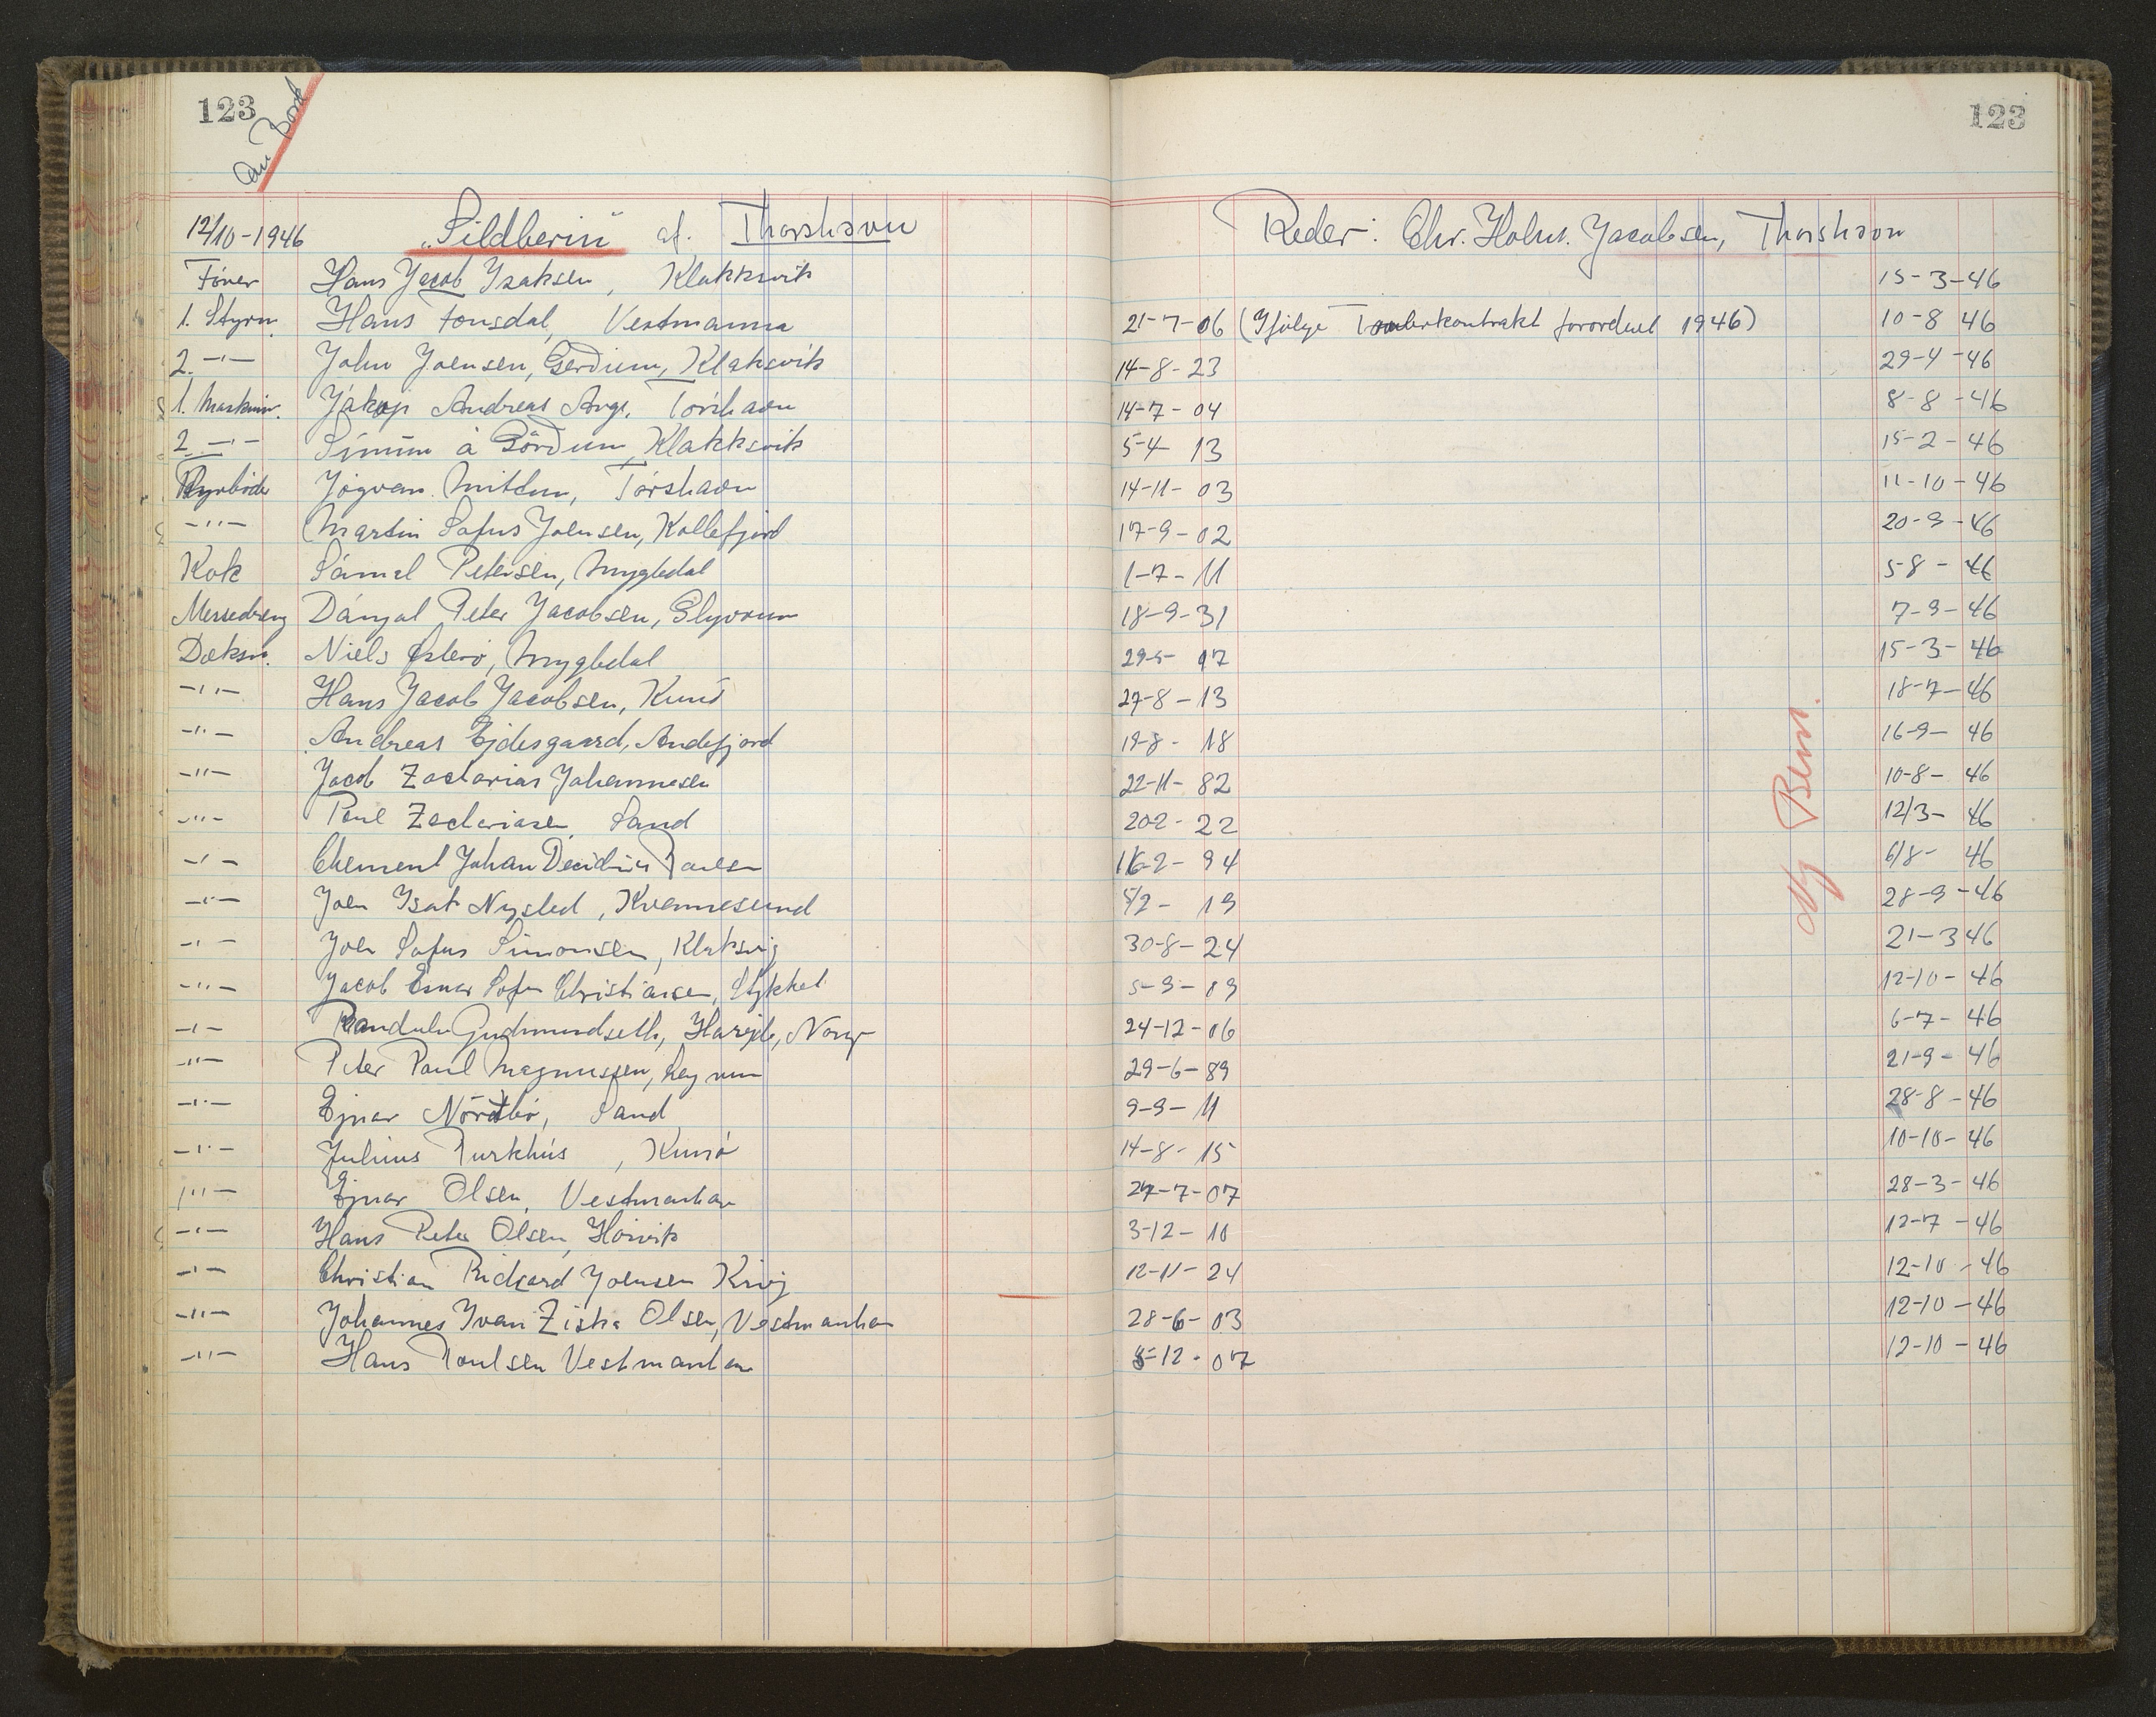 123 123
12/10-1946 „Sildberin" af. Thorshavn Reder: Chr. Holm. Jacobsen, Thorshavn
Fører Hans Jacob Isaksen, Klakksvik 15-3-46
1. Styrm. Hans Fonsdal, Vestmanna 21-7-06 (Ifølge forordnet 1946) 10-8 46
2. -"- John Joensen, Gerdum, Klaksvik 14-8-23 29-4-46
1. Maskinm. Jákup Andreas Arge, Tórshavn 14-7-04 8-8-46
2 -"- Símun á Görðum, Klakksvik 5-4 13 15-2-46
Fyrbøder Jógvan Mitdun, Tórshavn 14-11-03 11-10-46
-"- Martin Sofus Joensen, Kollefjord 17-9-02 20-9-46
Kok Sámal Petersen, Mygledal 1-7-11 5-8-46
Messedreng Dányal Peter Jacobsen, Glyvrum 18-9-31 7-9-46
Dæksm. Niels Østerø, Mygledal 29-5- 07 15-3-46
-"- Hans Jacob Jacobsen, Kunø 27-8-13 18-7-46
-"- Andreas Ejdesgaard, Andefjord 19-8-18 16-9-46
-"- Jacob Zacharias Johannesen 22-11-82 10-8-46
-"- Poul Zachariasen, Sand 20-2-22 12/3-46
-"- Clement Johan Poulsen 16-2-94 6/8-46
-"- Joen Isak Nysted, Kvannesund 5/2-19 28-9-46
-"- Joen Sofus Simonsen, Klaksvig 30-8-24 21-3 46
-"- Jacob Einar Sofus Christiansen, Stykket 5-9-09 12-10-46
-"- Randulv Gudmundseth, 24-12-06 6-7-46
-"- Peter Poul Magnussen, 29-6-89 21-9-46
-"- Ejnar Nórdbó, Sand 9-9-11 28-8-46
-"- Julius Purkhús, Kunø 14-8-15 10-10-46
-"- Ejnar Olsen, Vestmanhavn 27-7-07 28-3-46
-"- Hans Peter Olsen, Hósvik 3-12-10 12-7-46
-"- Christian Rickard Joensen Kvivj 12-11-24 12-10-46
-"- Johannes Ivan Ziska Olsen, Vestmanhavn 28-6-03 12-10-46
-"- Hans Poulsen Vestmanhavn 8-12-07 12-10-46
Ny Bem.